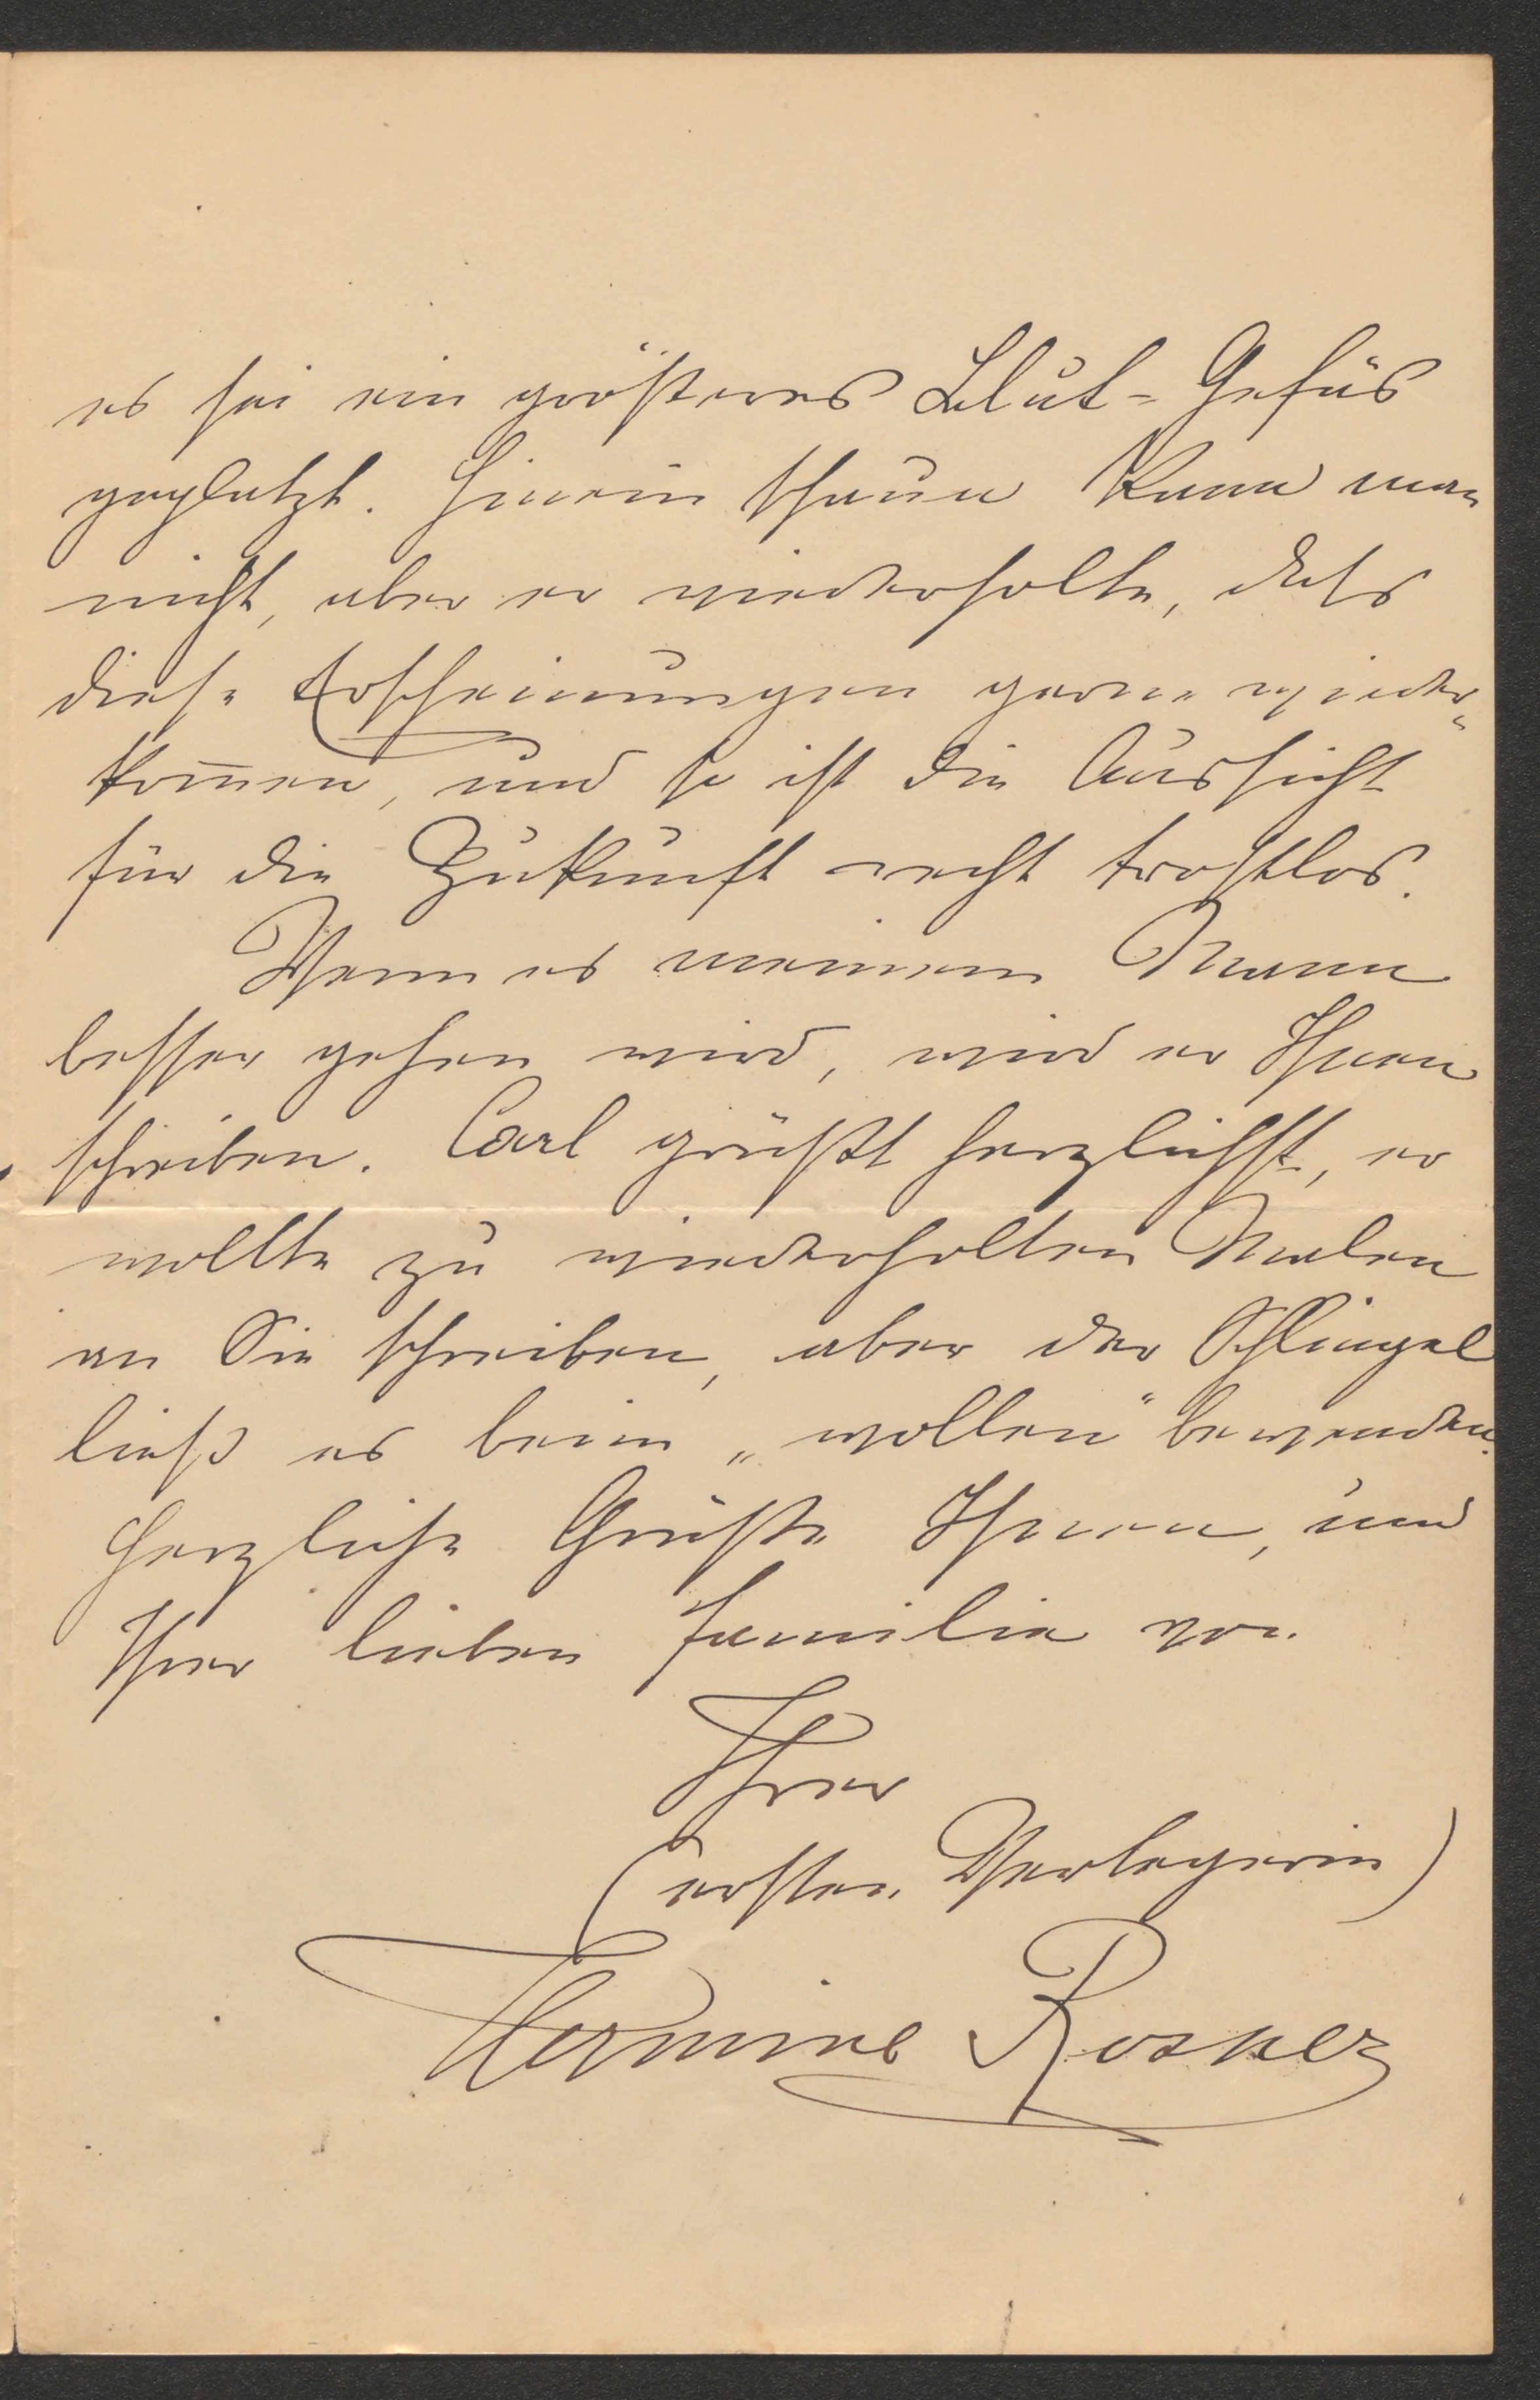 es sei ein größeres Blut-Gefäs
geplatzt. Hinein schaun kann man
nicht, aber er wiederholte, dass
diese Erscheinungen gerne wieder-
kom̅en, und so ist die Aussicht
für die Zukunft recht trostlos.
Wenn es meinem Mann
besser gehen wird, wird er Ihnen
schreiben. Carl grüßt herzlichst, er
wollte zu wiederholten Malen
an Sie schreiben, aber der Schlingel
ließ es beim „wollen“ bewenden.
Herzliche Grüße Ihnen, und
Ihrer lieben Familie von
Ihrer
(ersten Verlegerin)
Hermine Rosner